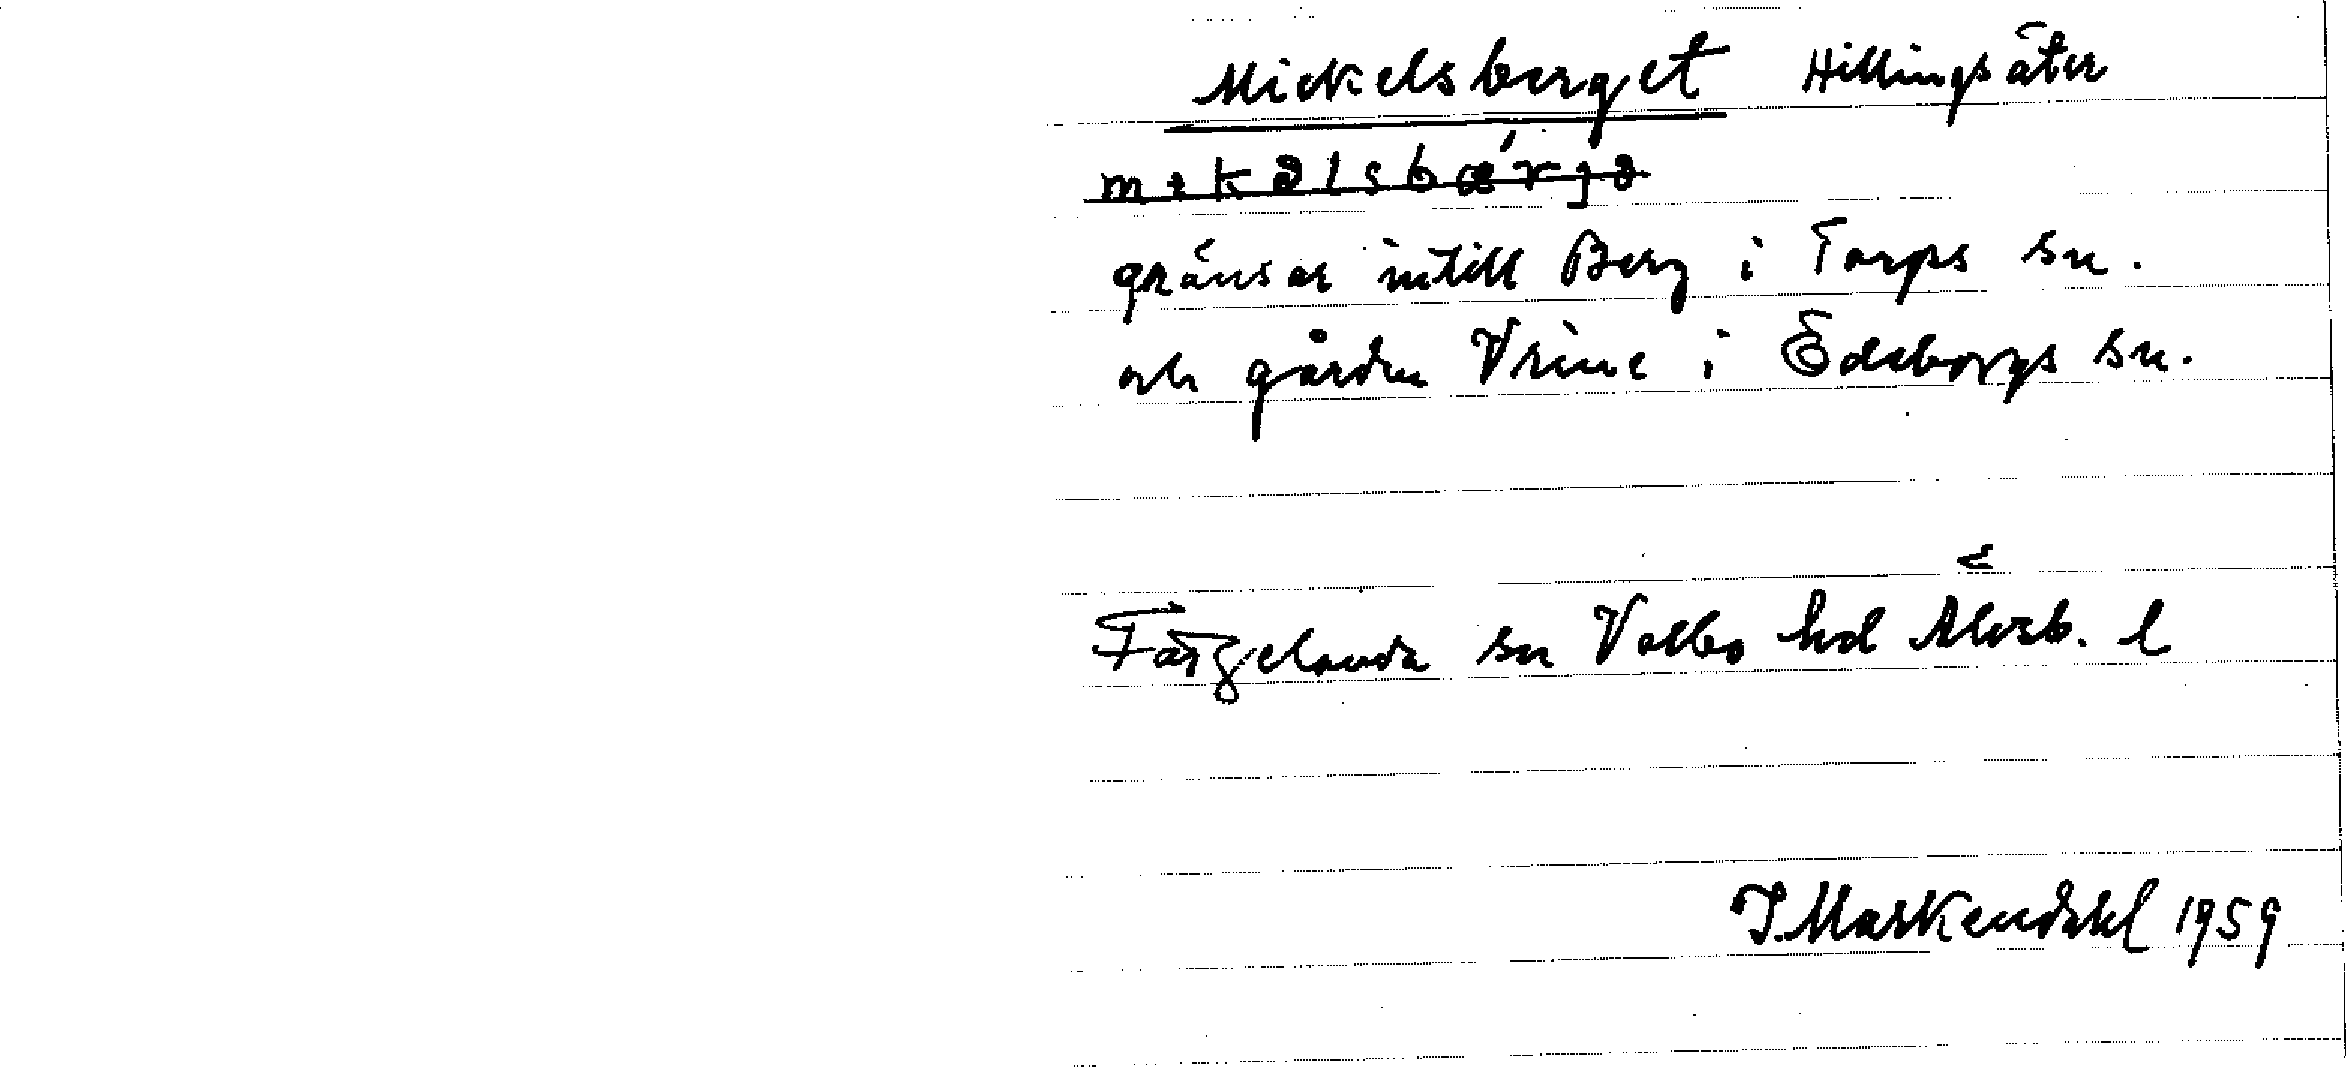 Mickelsberget Hillingsäter
mɩkəlsbæ´rjə
gränsar intill Berg i Torps sn.
och gården Vrine i Ödeborgs sn.
Färgelanda sn Valbo hd Älvsb. l
J. Markendahl 1959